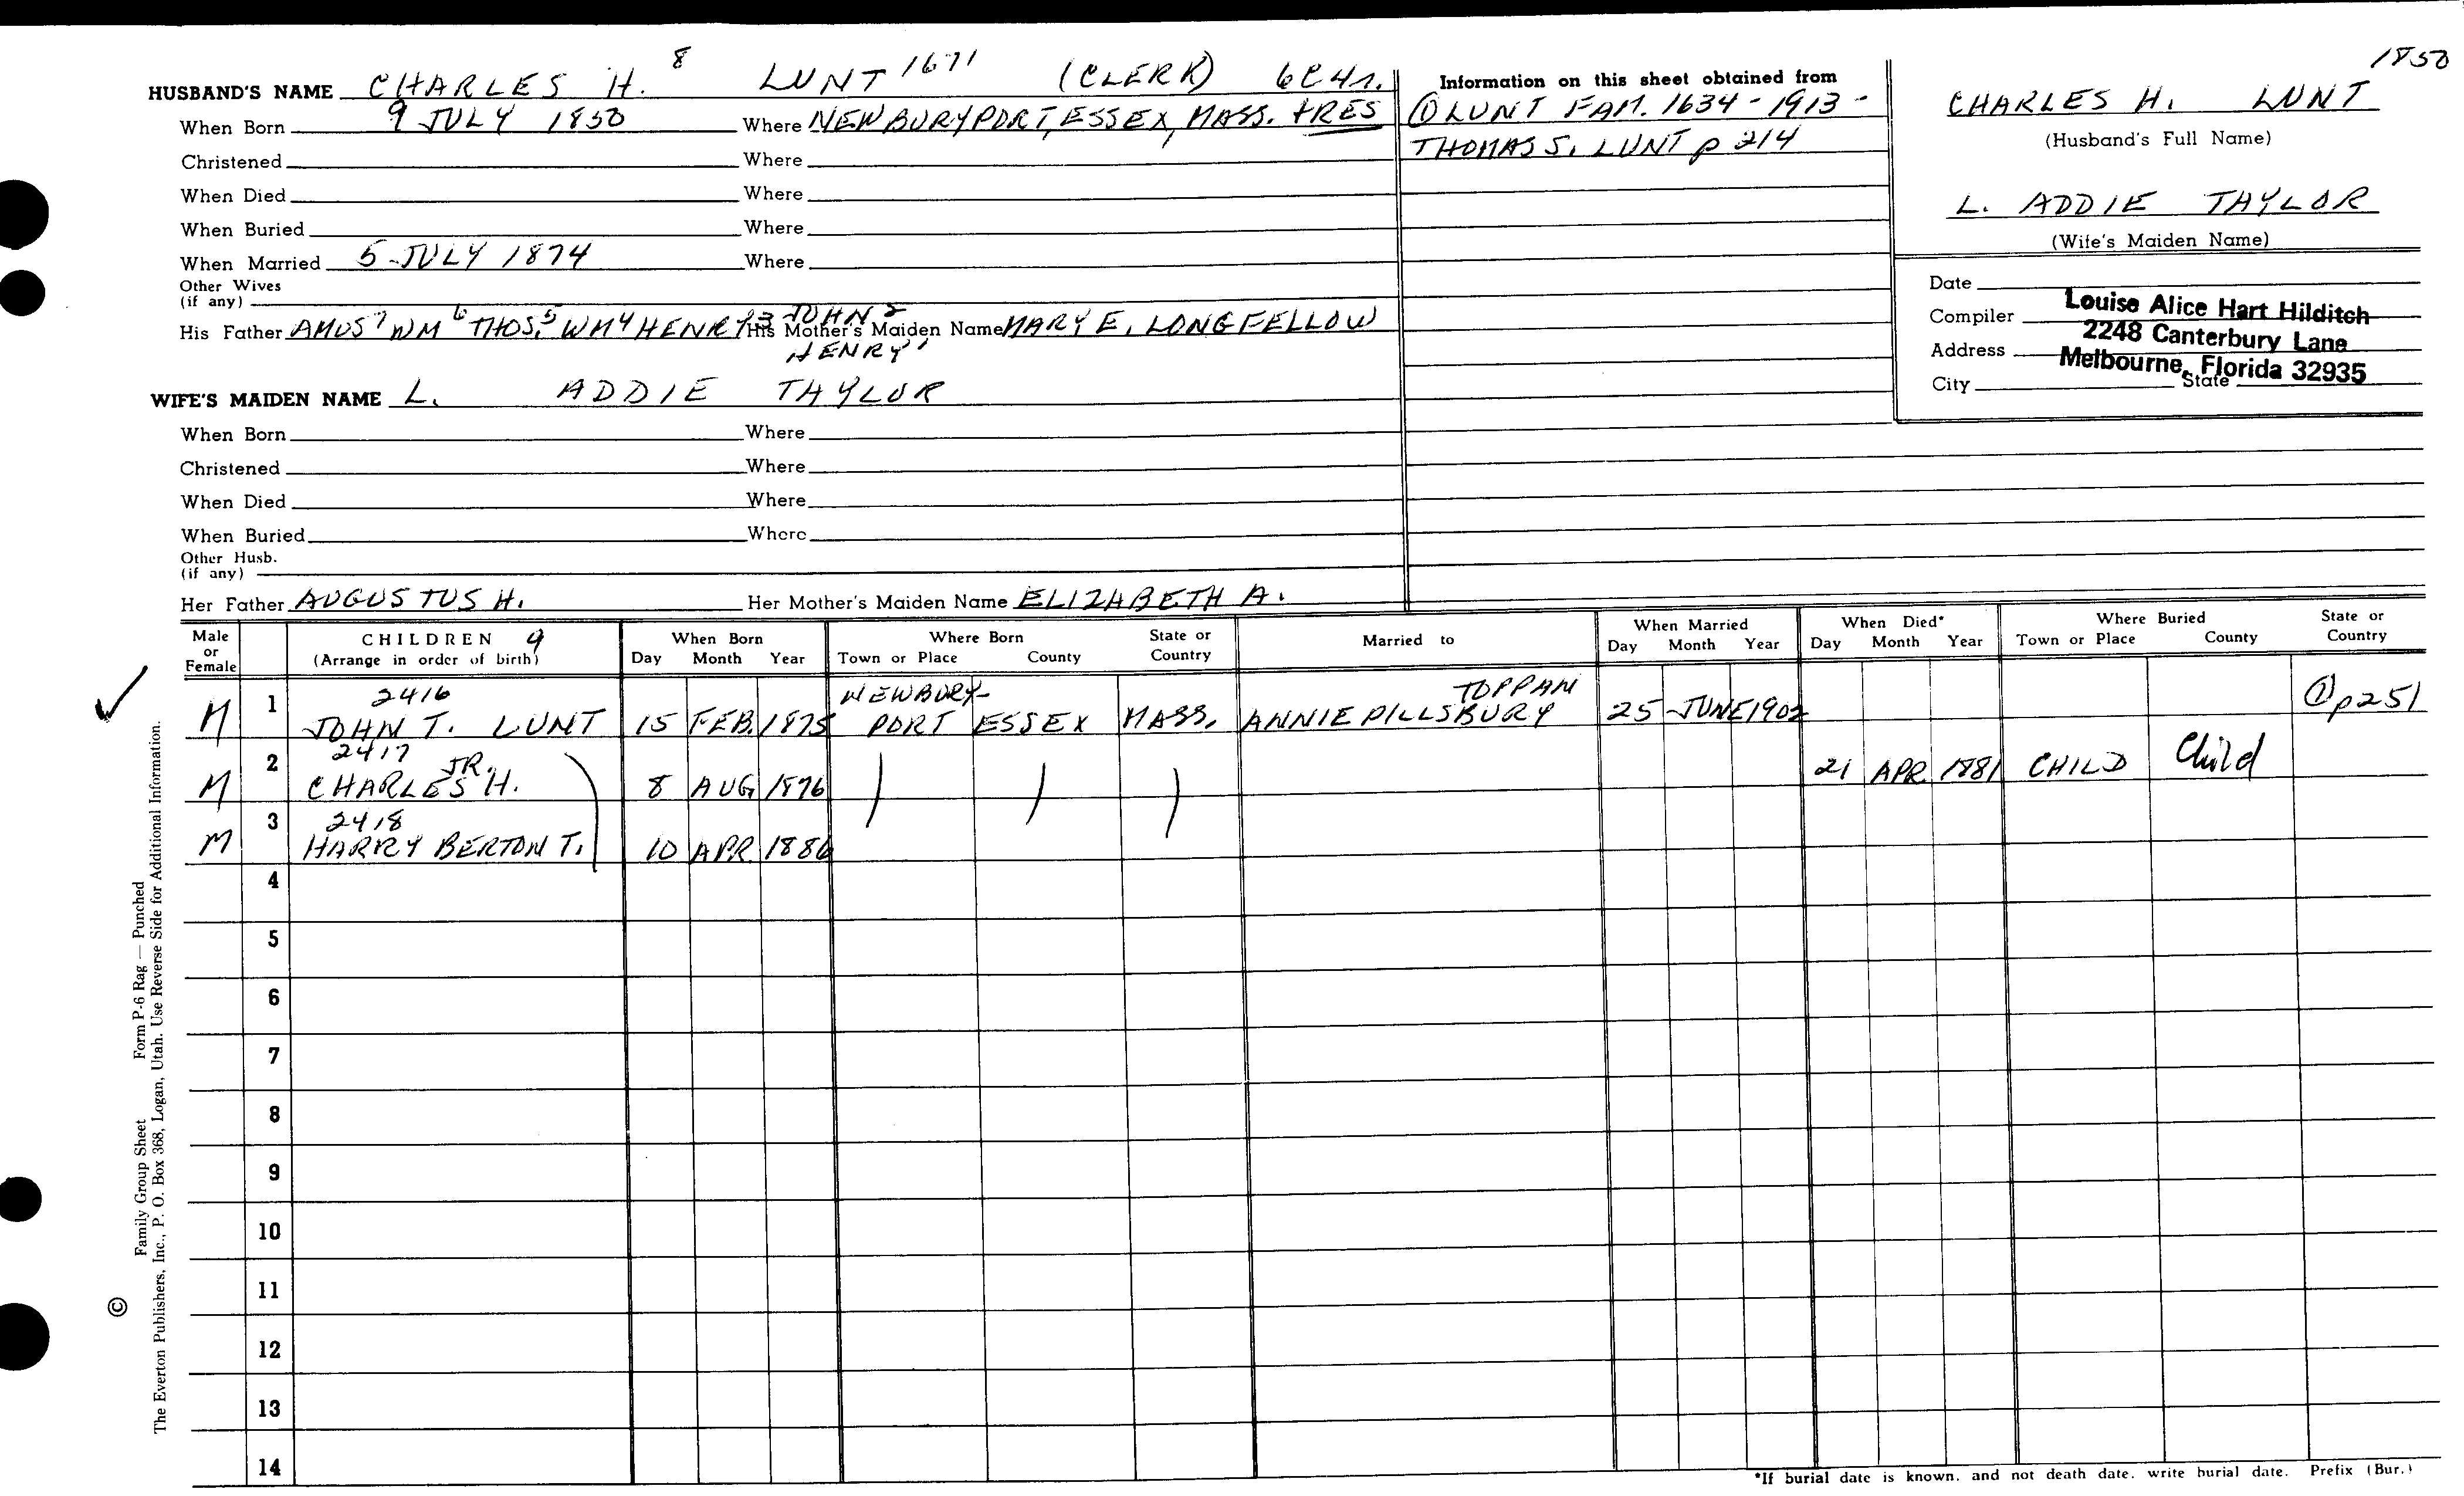 1850
HUSBAND'S NAME CHARLES H. 8 LUNT 1671 (CLERK) 6C4r.
When Born 9 JULY 1850 Where NEWBURYPORT, ESSEX, MASS. +RES
Christened Where
When Died Where
When Buried Where
When Married 5 JULY 1874 Where
Other Wives
(if any)
His Father AMOS 7 WM 6 THOS. 5 WM 4 HENRY 3 JOHN 2 HENRY 1 His Mother's Maiden Name MARY E. LONGFELLOW
WIFE'S MAIDEN NAME L. ADDIE TAYLOR
When Born Where
Christened Where
When Died Where
When Buried Where
Other Husb.
(if any)
Her Father AUGUSTUS H. Her Mother's Maiden Name ELIZABETH A.
Information on this sheet obtained from
① LUNT FAM. 1634-1913-
THOMAS S. LUNT p 214
CHARLES H. LUNT
(Husband's Full Name)
L. ADDIE TAYLOR
(Wife's Maiden Name)
Date
Compiler Louise Alice Hart Hilditch
Address 2248 Canterbury Lane
Melbourne, Florida 32935
City State
Male or Female CHILDREN 9 (Arrange in order of birth) When Born Day Month Year Where Born Town or Place County State or Country Married to When Married Day Month Year When Died* Day Month Year Where Buried Town or Place County State or Country
M 1 2416 JOHN T. LUNT 15 FEB. 1875 NEWBURY-PORT ESSEX MASS. ANNIE PILLSBURY TOPPAN 25 JUNE 1902 ① p251
M 2 2417 CHARLES H. JR. 8 AUG 1876 21 APR 1881 CHILD Child
M 3 2418 HARRY BERTON T. 10 APR 1886
4
5
6
7
8
9
10
11
12
13
14
*If burial date is known, and not death date, write burial date. Prefix (Bur.)
© Family Group Sheet Form P-6 Rag — Punched
The Everton Publishers, Inc., P. O. Box 368, Logan, Utah. Use Reverse Side for Additional Information.